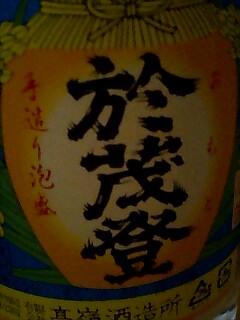 おもと
於茂登
手造り泡盛
高嶺酒造所